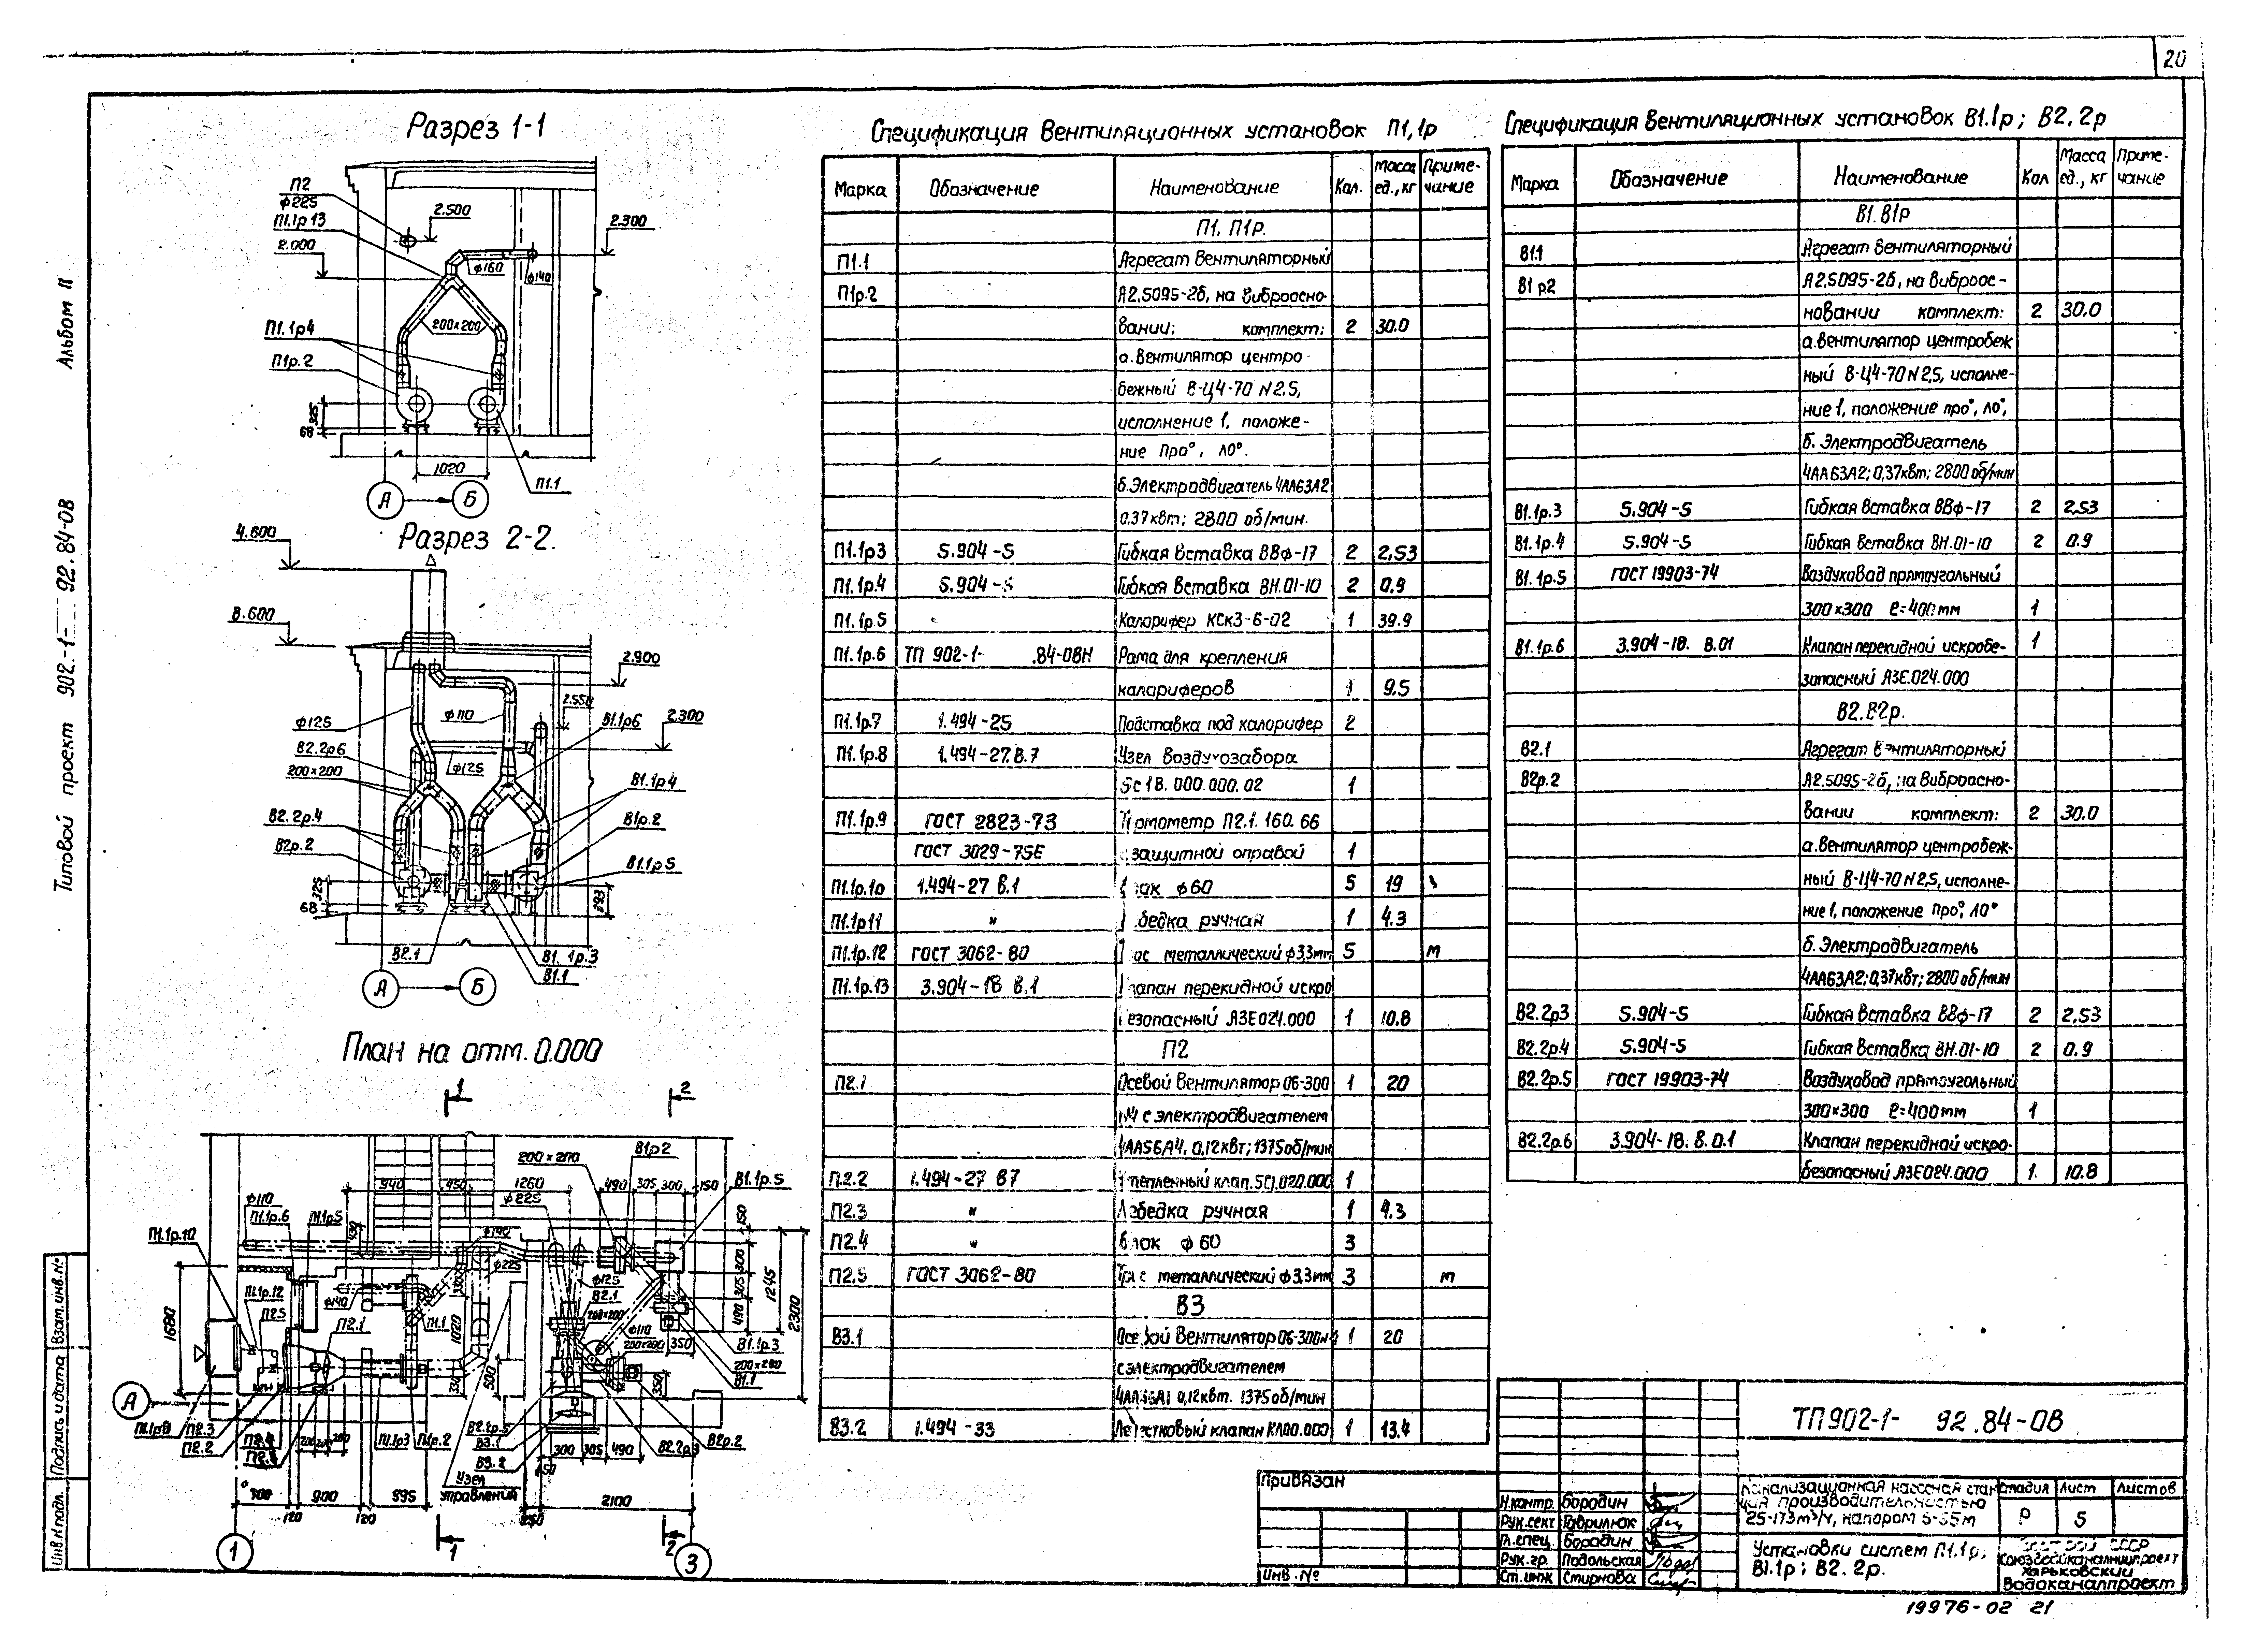 20
Альбом II
Типовой проект 902-1- 92.84-ОВ
Взам.инв.№
Подпись и дата
Инв.№ подл.
Разрез 1-1
П2
ф225
П1.1р13
2.000
2.500
2.300
ф160
ф140
200×200
П1.1р4
П1р.2
325
68
1020
П1.1
А
Б
Разрез 2-2.
4.600
8.600
2.900
2.550
2.300
ф125
ф110
В1.1р6
В2.2р6
200×200
ф125
В1.1р4
В2.2р.4
В1р.2
В2р.2
В1.1р5
325
68
В2.1
В1.1р.3
В1.1
А
Б
План на отм. 0.000
1
2
200×200
В1р2
940
450
1260
490
305
300
150
В1.1р.5
ф225
ф110
П1.1р.6
П1.1р5
П1.1р.10
ф140
ф225
150
300
305
490
1245
2300
П1.1р.12
П2.5
П2.1
ф140
П1.1
1020
ф125
В2.1
200×200
ф110
200×200
350
В1.1р3
200×200
В1.1
1680
500
350
А
П2.3
П2.2
П1.1р3
П1р.2
В2.2р.5
В3.1
В3.2
В2.2р3
В2р.2
300
305
490
Узел
управления
900
895
2100
120
120
250
1
1
2
3
Спецификация вентиляционных установок П1,1р
Марка Обозначение Наименование Кол. Масса ед., кг Приме-чание
П1. П1р.
П1.1 Агрегат вентиляторный
П1р.2 А2,5095-2б, на виброосно-
вании; комплект: 2 30.0
а. вентилятор центро-
бежный В-Ц4-70 N2.5,
исполнение 1, положе-
ние Про°, Л0°.
б. Электродвигатель 4АА63А2
0.37квт; 2800 об/мин.
П1.1р3 5.904-5 Гибкая вставка ВВф-17 2 2,53
П1.1р.4 5.904-5 Гибкая вставка ВН.01-10 2 0.9
П1.1р.5 Калорифер КСк3-6-02 1 39.9
П1.1р.6 ТП 902-1- .84-ОВН Рама для крепления
калориферов 1 9.5
П1.1р.7 1.494-25 Подставка под калорифер 2
П1.1р.8 1.494-27.В.7 Узел воздухозабора
5с18.000.000.02 1
П1.1р.9 ГОСТ 2823-73 Термометр П2.1.160.66
ГОСТ 3029-75Е защитной оправой 1
П1.1р.10 1.494-27 В.1 Блок ф60 5 19
П1.1р11 " Лебедка ручная 1 4.3
П1.1р.12 ГОСТ 3062-80 Трос металлический ф3,3мм 5 м
П1.1р.13 3.904-18 В.1 Клапан перекидной искро
безопасный АЗЕ024.000 1 10.8
П2
П2.1 Осевой вентилятор 06-300 1 20
N4 с электродвигателем
4АА56А4, 0,12квт; 1375об/мин
П.2.2 1.494-27 В7 Утепленный клап. 1
П2.3 " Лебедка ручная 1 4.3
П2.4 " Блок ф60 3
П2.5 ГОСТ 3062-80 Трос металлический ф3,3мм 3 м
В3
В3.1 Осевой вентилятор 06-300N4 1 20
с электродвигателем
0,12квт. 1375об/мин
В3.2 1.494-33 Лепестковый клапан КЛ00.000 1 13.4
Спецификация вентиляционных установок В1.1р; В2.2р
Марка Обозначение Наименование Кол Масса ед., кг Приме-чание
В1. В1р
В1.1 Агрегат вентиляторный
В1р2 А2,5095-2б, на виброос-
новании комплект: 2 30.0
а. вентилятор центробеж
ный В-Ц4-70 N2,5, исполне-
ние 1, положение про°, Л0°,
б. Электродвигатель
4АА63А2; 0,37квт; 2800 об/мин
В1.1р.3 5.904-5 Гибкая вставка ВВф-17 2 2,53
В1.1р.4 5.904-5 Гибкая вставка ВН.01-10 2 0.9
В1.1р.5 ГОСТ 19903-74 Воздуховод прямоугольный
300×300 ℓ=400мм 1
В1.1р.6 3.904-18. В.01 Клапан перекидной искробе- 1
зопасный АЗЕ.024.000
В2. В2р.
В2.1 Агрегат вентиляторный
В2р.2 А2.5095-2б, на виброосно-
вании комплект: 2 30.0
а. вентилятор центробеж-
ный В-Ц4-70 N2,5, исполне-
ние 1, положение Про°, Л0°
б. Электродвигатель
4АА63А2; 0,37квт; 2800 об/мин
В2.2р3 5.904-5 Гибкая вставка ВВф-17 2 2,53
В2.2р.4 5.904-5 Гибкая вставка ВН.01-10 2 0.9
В2.2р.5 ГОСТ 19903-74 Воздуховод прямоугольный
300×300 ℓ=400мм 1
В2.2р.6 3.904-18.В.0.1 Клапан перекидной искро-
безопасный АЗЕ024.000 1. 10.8
Привязан
Инв.№
ТП902-1- 92.84-ОВ
Н.контр. Бородин
Рук.сект. Гаврилюк
Гл.спец. Бородин
Рук.гр. Подольская
Ст.инж Смирнова
Канализационная насосная стан
ция производительностью
25-173м³/ч, напором 6-55м
Стадия Лист Листов
Р 5
Установки систем П1.1р;
В1.1р; В2.2р.
Госстрой СССР
Союзводоканалниипроект
Харьковский
Водоканалпроект
19976-02 21